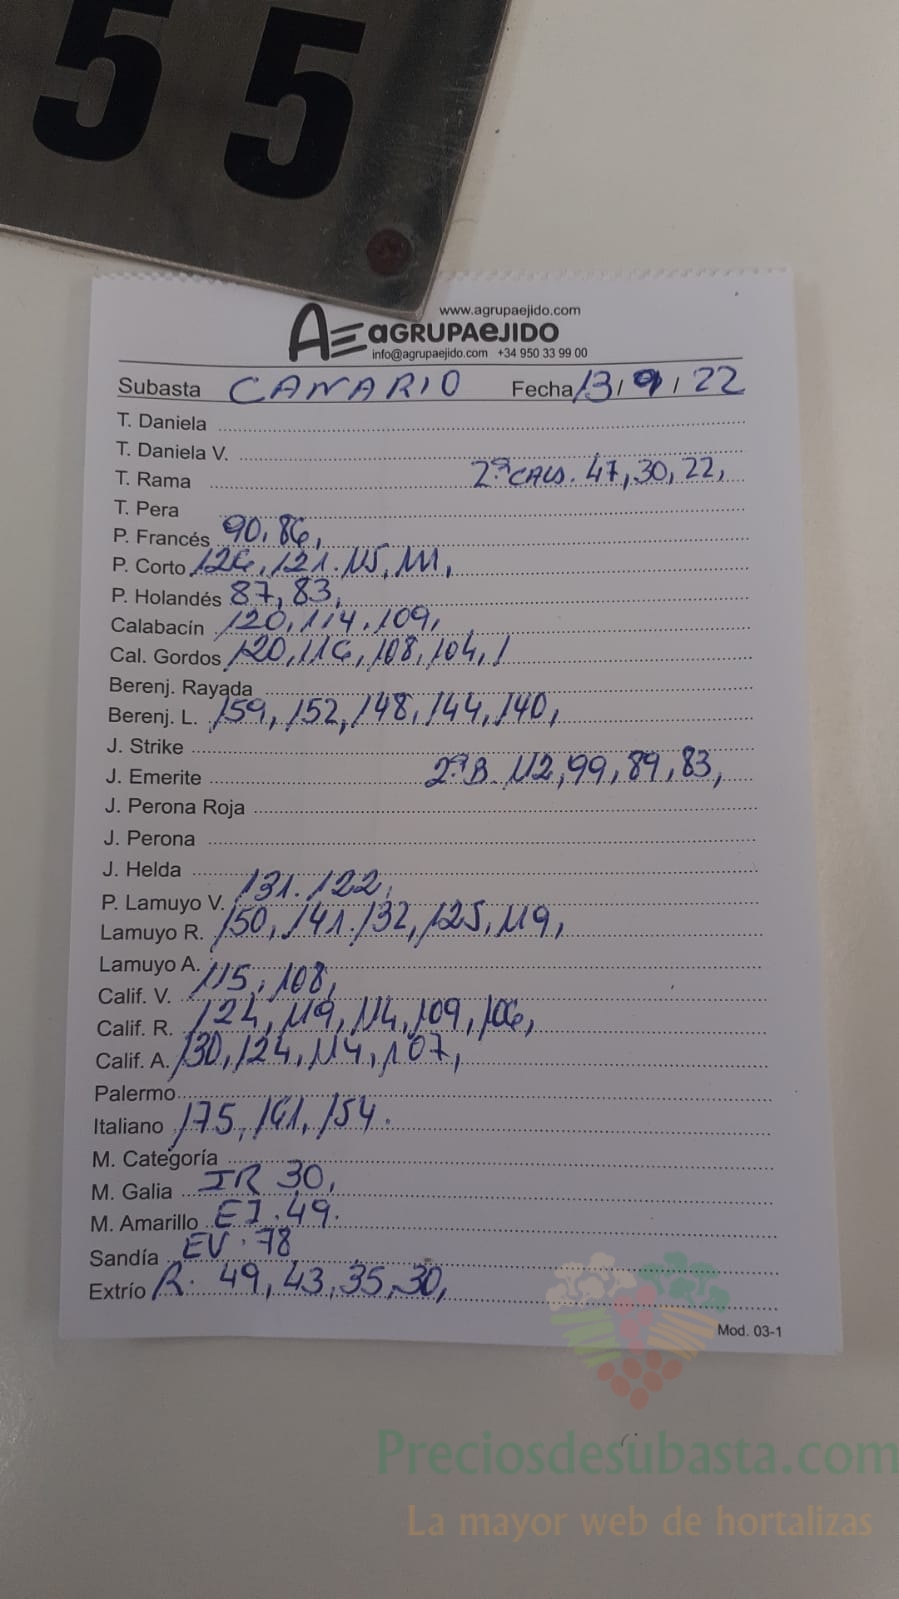 55
www.agrupaejido.com
AE aGRUPAeJIDO
info@agrupaejido.com +34 950 33 99 00
Subasta CANARIO Fecha 13/9/22
T. Daniela
T. Daniela V.
T. Rama 2ª CALS. 47,30,22,
T. Pera
P. Francés 90,86,
P. Corto 126,121.115,111,
P. Holandés 87,83,
Calabacín 120,114.109,
Cal. Gordos 120,116,108,104,1
Berenj. Rayada
Berenj. L. 159,152,148,144,140,
J. Strike
J. Emerite 2ª B. 112,99,89,83,
J. Perona Roja
J. Perona
J. Helda
P. Lamuyo V. 131.122,
Lamuyo R. 150,141.132,125,119,
Lamuyo A.
Calif. V. 115,108,
Calif. R. 124,119,114,109,106,
Calif. A. 130,124,114,107,
Palermo
Italiano 175,161,154.
M. Categoría
M. Galia IR 30,
M. Amarillo EJ.49.
Sandía EV.78
Extrío R. 49,43,35,30,
Mod. 03-1
Preciosdesubasta.com
La mayor web de hortalizas